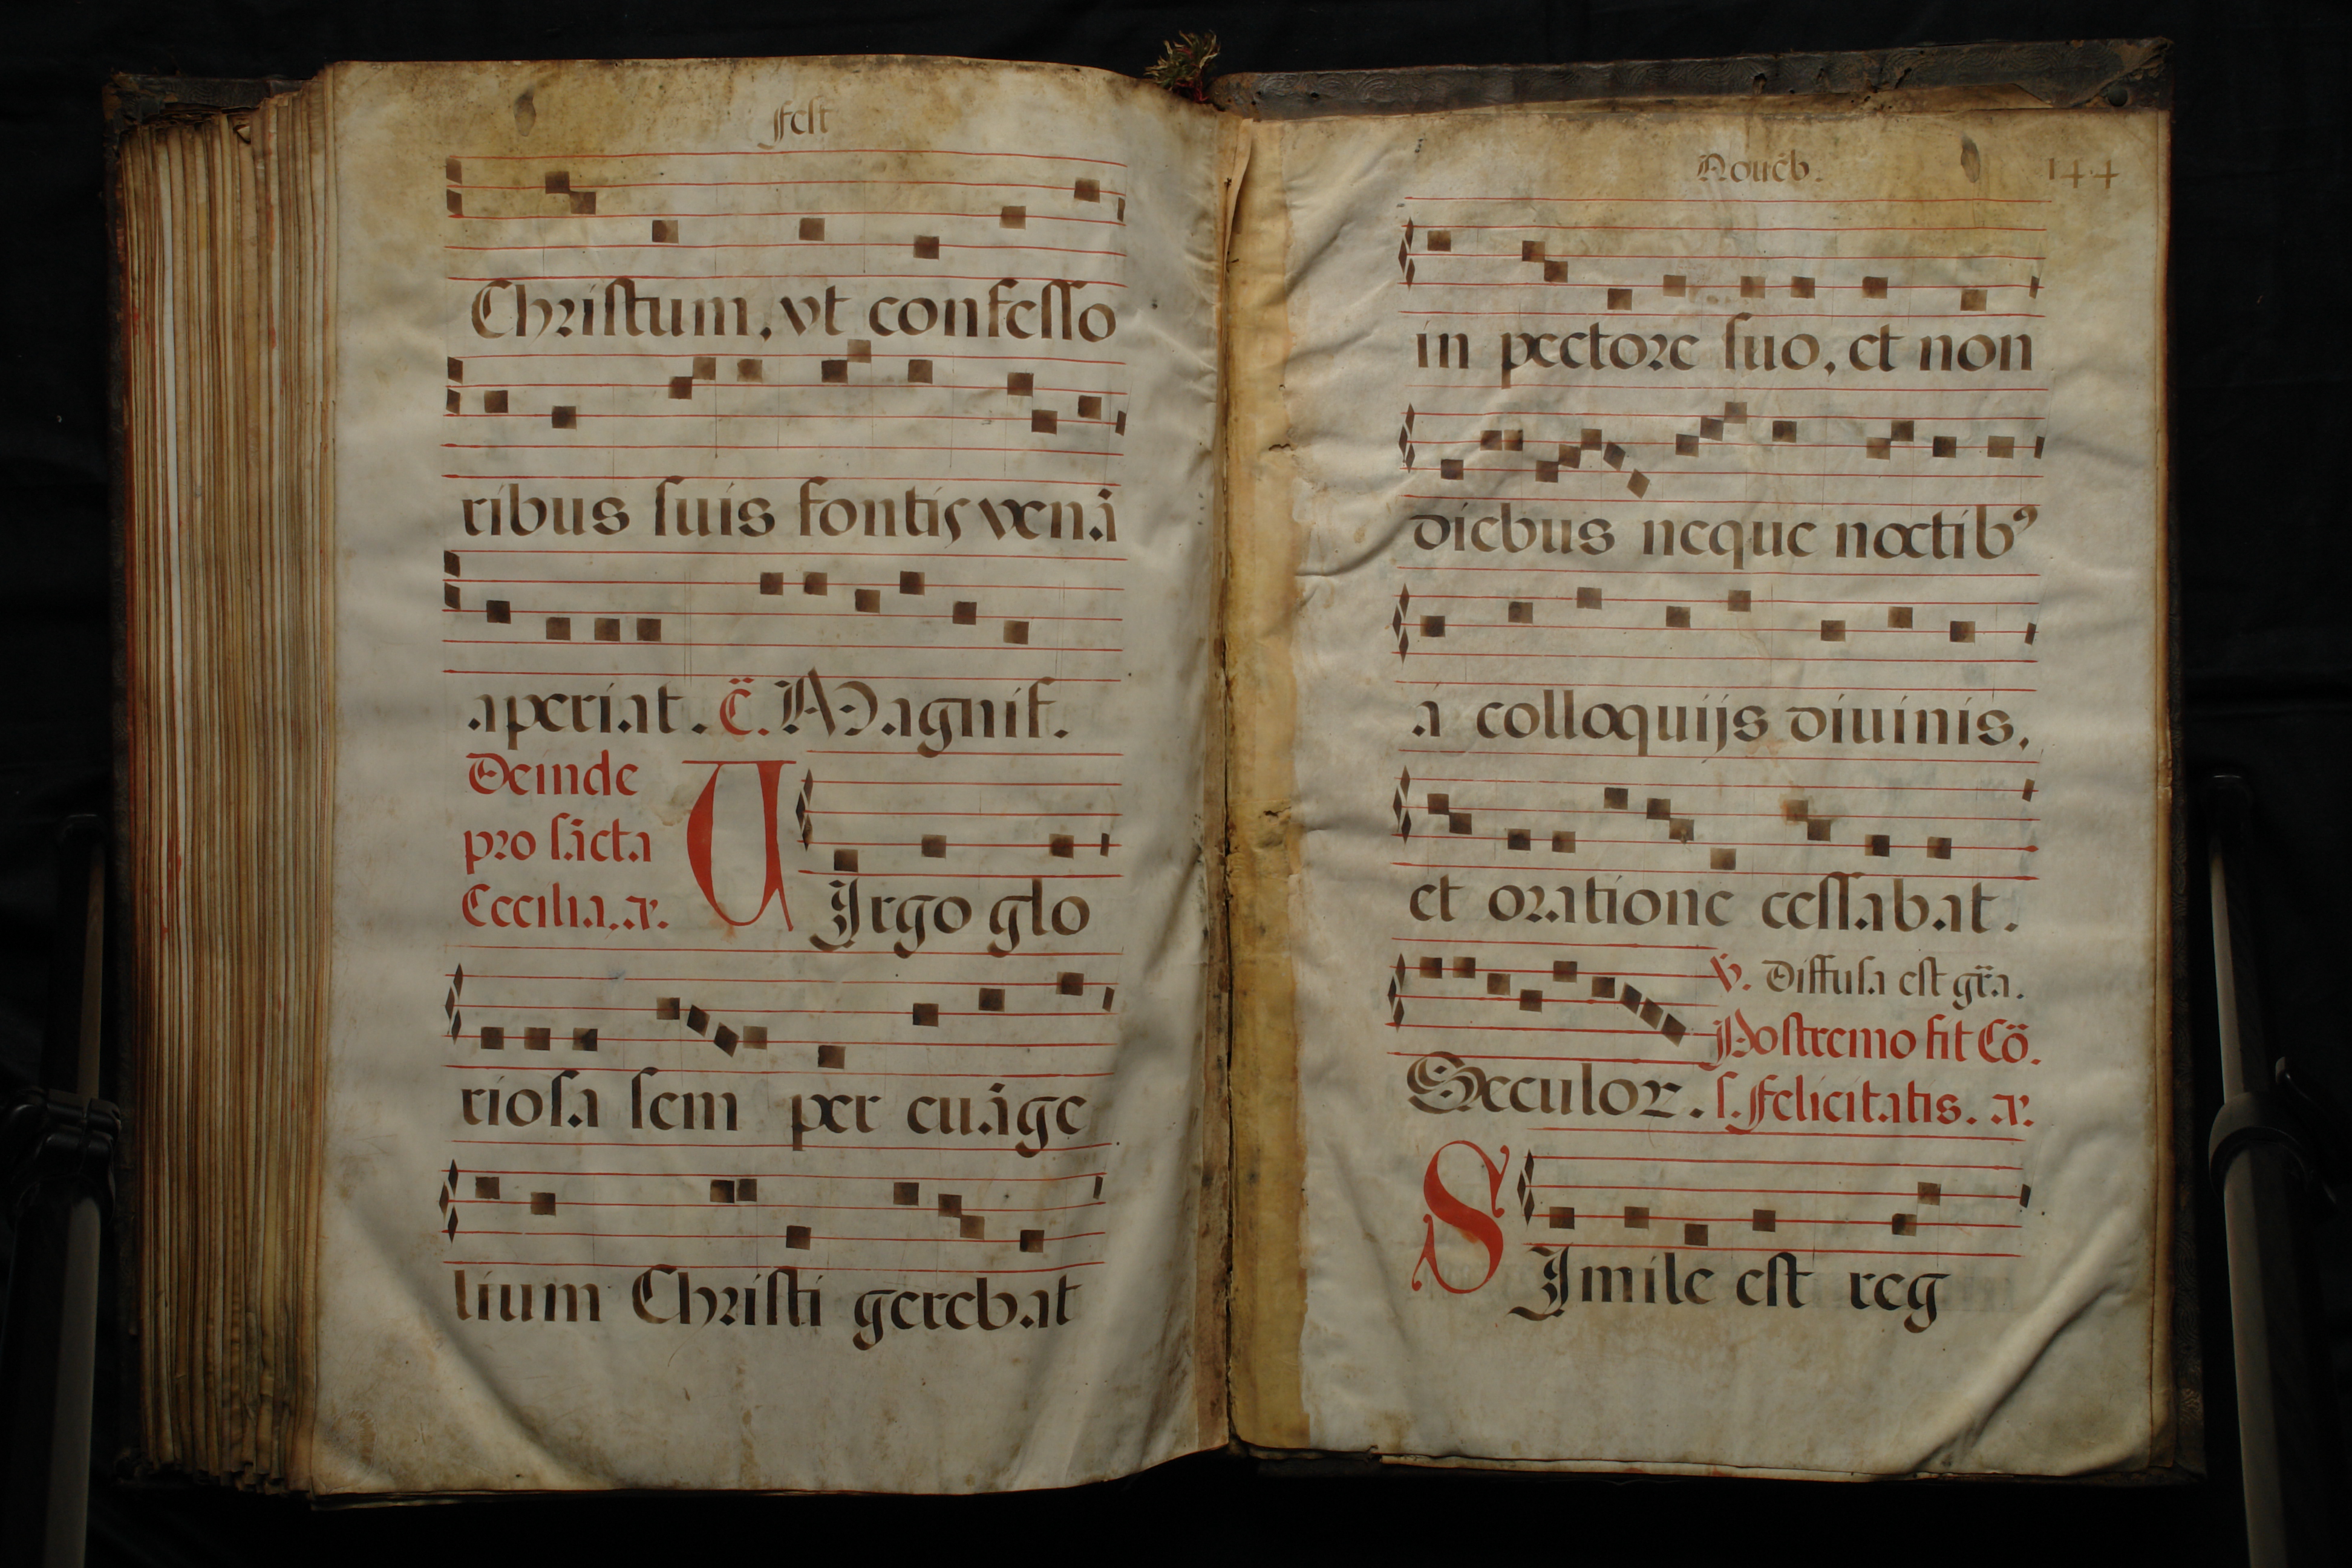 fest
Christum, vt confesso
ribus suis fontis venā
aperiat. c̈. Magnif.
Deinde
pro sācta
Cecilia. ar.
VIrgo glo
riosa sem per euāge
lium Christi gerebat
Nouēb. 144
in pectore suo, et non
diebus neque noctib⁹
a colloquijs diuinis,
et oratione cessabat.
℣. Diffusa est gr̃a.
Postremo fit Cō.
Seculor. s. Felicitatis. ar.
SImile est reg